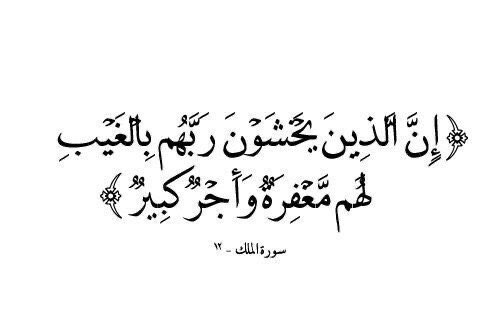 ﴿إِنَّ الَّذِينَ يَخْشَوْنَ رَبَّهُم بِالْغَيْبِ
لَهُم مَّغْفِرَةٌ وَأَجْرٌ كَبِيرٌ﴾
سورة الملك - ١٢